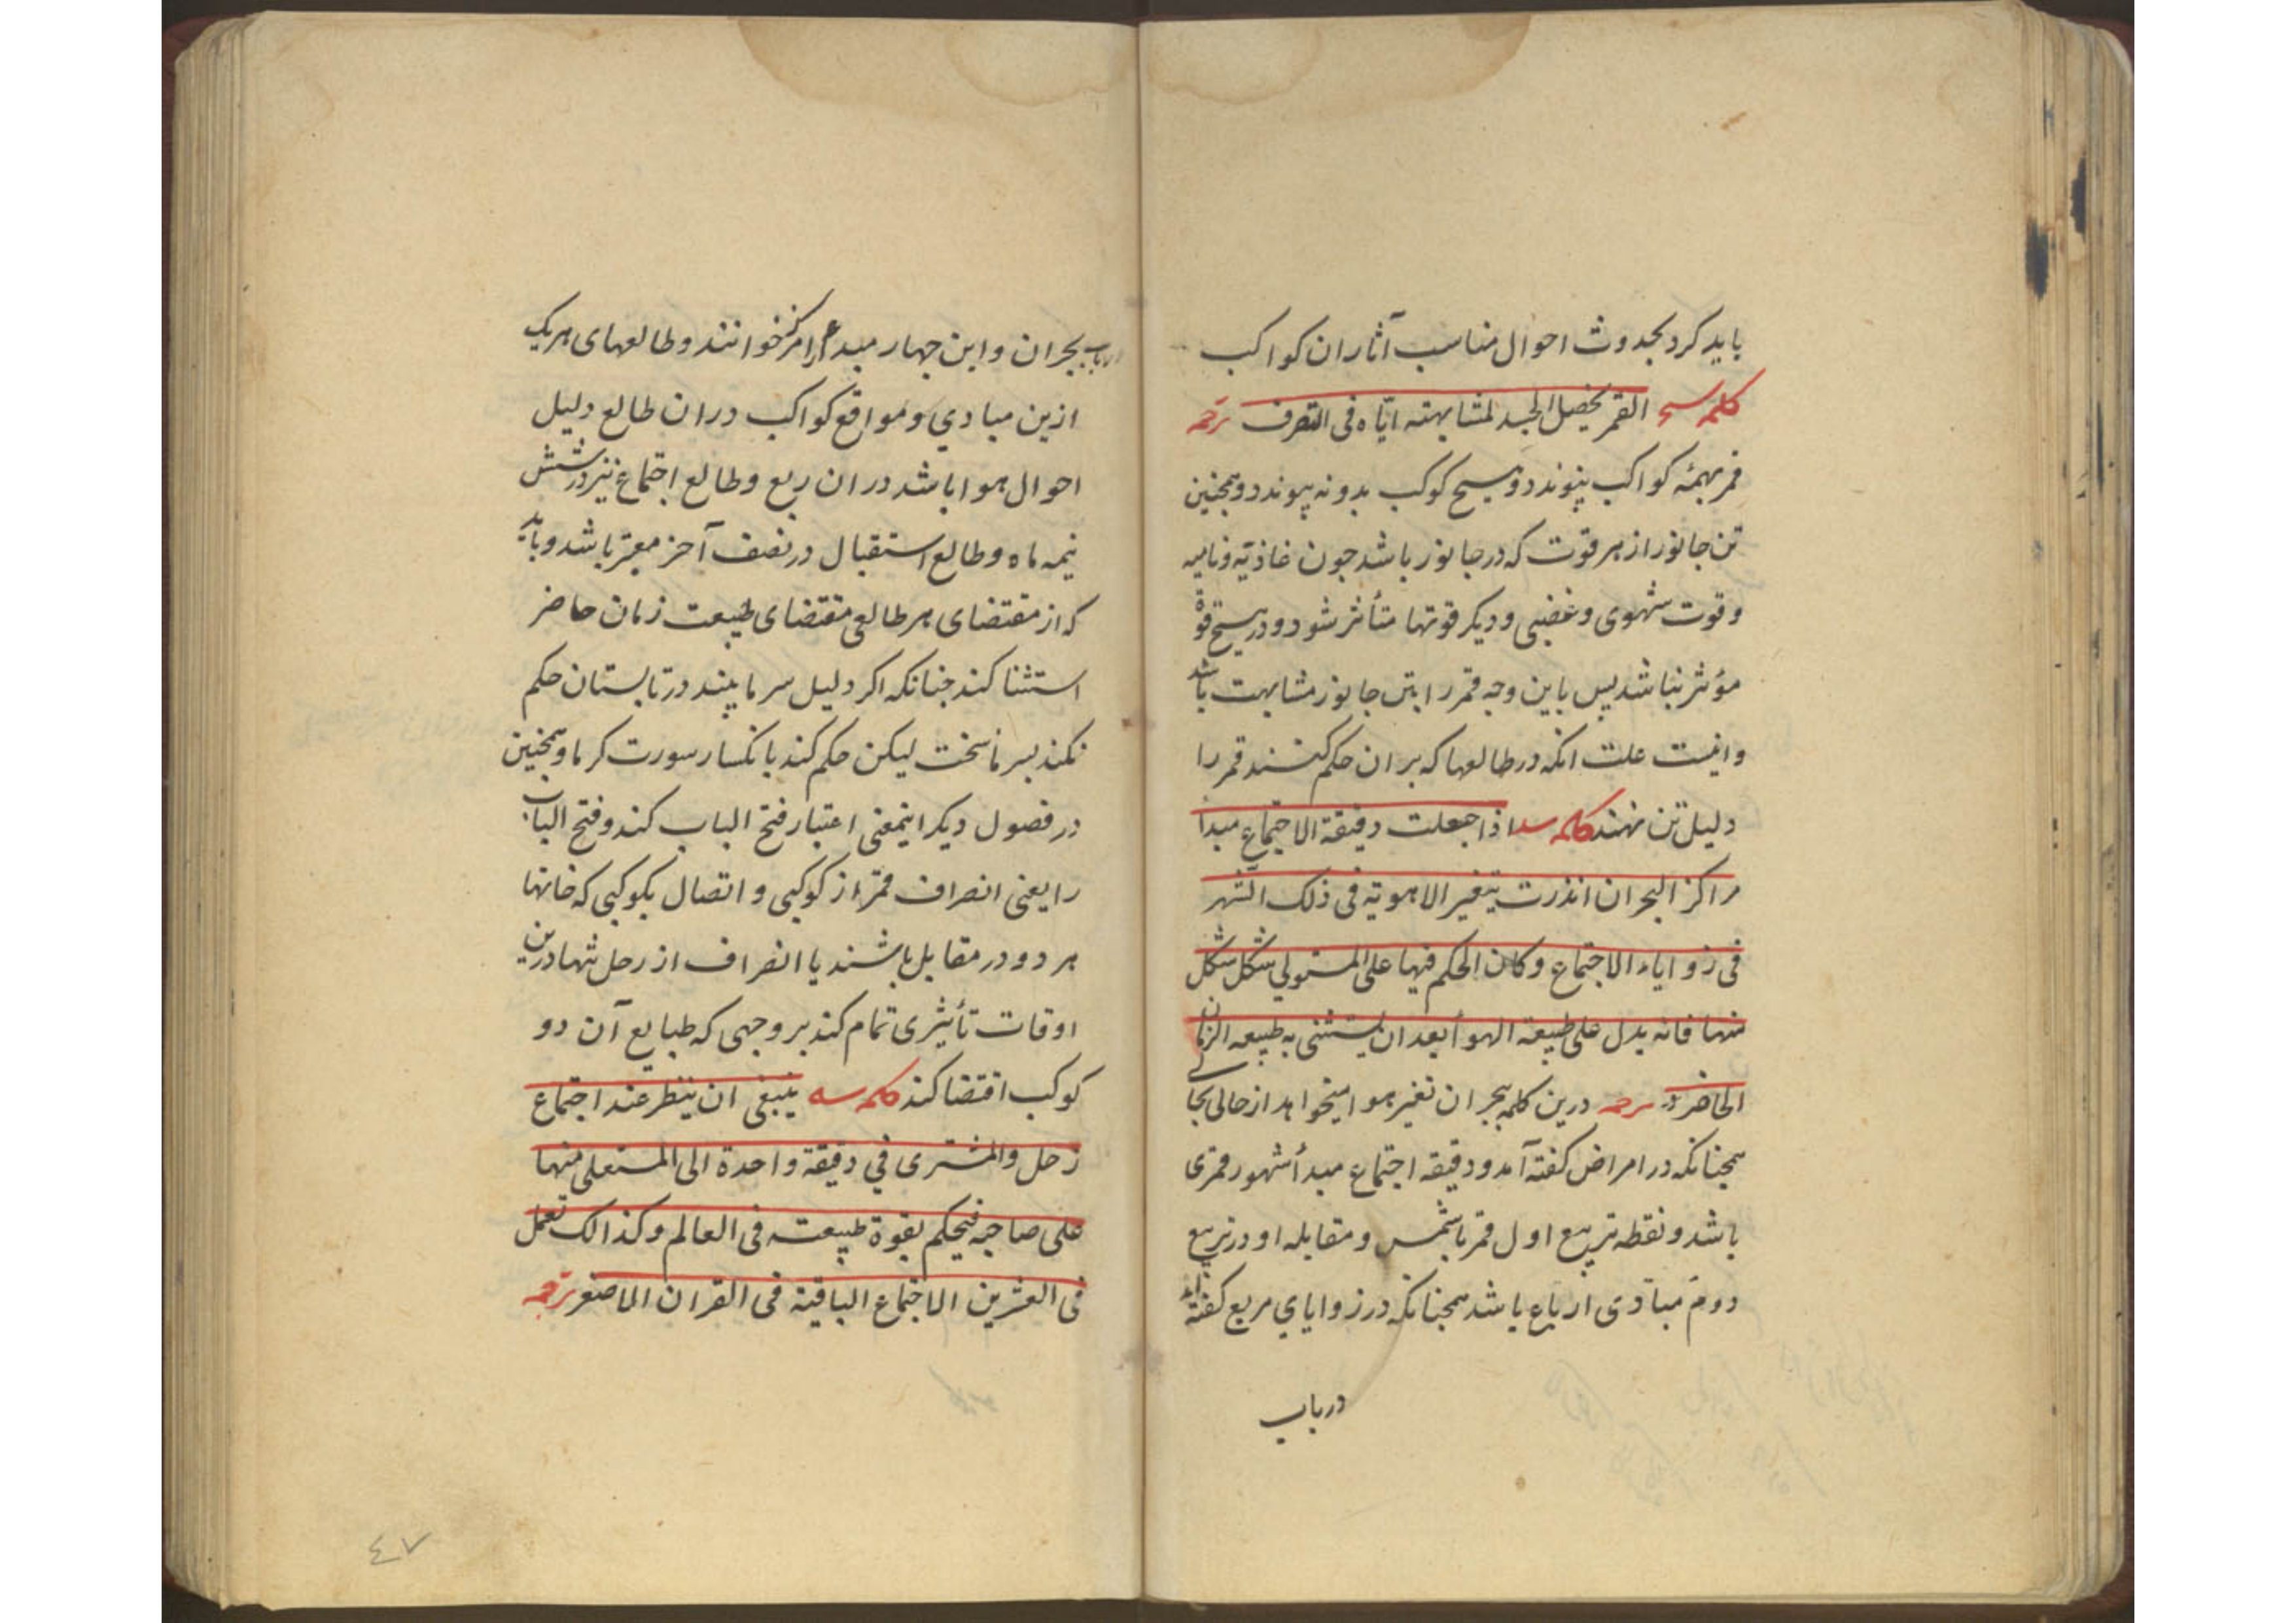 باید کرد بحدوث احوال مناسب آثار ان کواکب
کلمه القمر یخصل الجسد لمشابهته ایاه فی التصرف ترجمه
قمر بهمه کواکب پیوندد و هیچ کوکب بدو نه پیوندد و همچنین
تن جانور از هر قوت که در جانور باشد جون غاذیه و نامیه
و قوت شهوی و غضبی و دیکر قوتها متأثر شود و در هیچ قوة
مؤثر نباشد پس باین وجه قمر را بتن جانور مشابهت باشد
و اینست علت انکه در طالعها که بر ان حکم کنند قمر را
دلیل تن نهند کلمه اذا جعلت دقیقة الاجتماع مبدأ
مراکز البحران انذرت بتغیر الاهویة فی ذلک الشهر
فی زوایاء الاجتماع و کان الحکم فیها علی المستولی شکل شکل
منها فانه یدل علی طبیعة الهوأ بعد ان یستثنی به طبیعه الزمان
الحاضر درین کلمه بحران تغیر هوا میخواهد از حالی بحالی
همجنانکه در امراض کفته آمد و دقیقه اجتماع مبدأ شهور قمری
باشد و نقطه تربیع اول قمر با شمس و مقابله او در تربیع
دوم مبادی ارباع باشد همجنانکه در زوایاي مربع کفته اند
در باب
در باب بحران و این جهار مبدء را مرکز خوانند و طالعهای هریک
ازین مبادي و مواقع کواکب در ان طالع دلیل
احوال هوا باشد در ان ربع و طالع اجتماع نیز در شش
نیمه ماه و طالع استقبال در نصف آخر معتبر باشد و باید
که از مقتضای هر طالعی مقتضای طبیعت زمان حاضر
استثنا کند جنانکه اکر دلیل سرما بیند در تابستان حکم
نکند بسرما سخت لیکن حکم کند بانکسار سورت کرما و همچنین
در فصول دیکر اینمعنی اعتبار فتح الباب کند و فتح الباب
را یعنی انصراف قمر از کوکبی و اتصال بکوکبی که خانها
هر دو در مقابل باشند یا انصراف از رحل تنها درین
اوقات تأثیری تمام کند بر وجهی که طبایع آن دو
کوکب اقتضا کند کلمه ینبغی ان ینظر عند اجتماع
زحل والمشتری في دقیقة واحدة الی المستعلی منها
علی صاحبه فیحکم بقوة طبیعته فی العالم و کذالک تعمل
فی العشرین الاجتماع الباقیة فی القران الاصغر ترجمه
٤٧